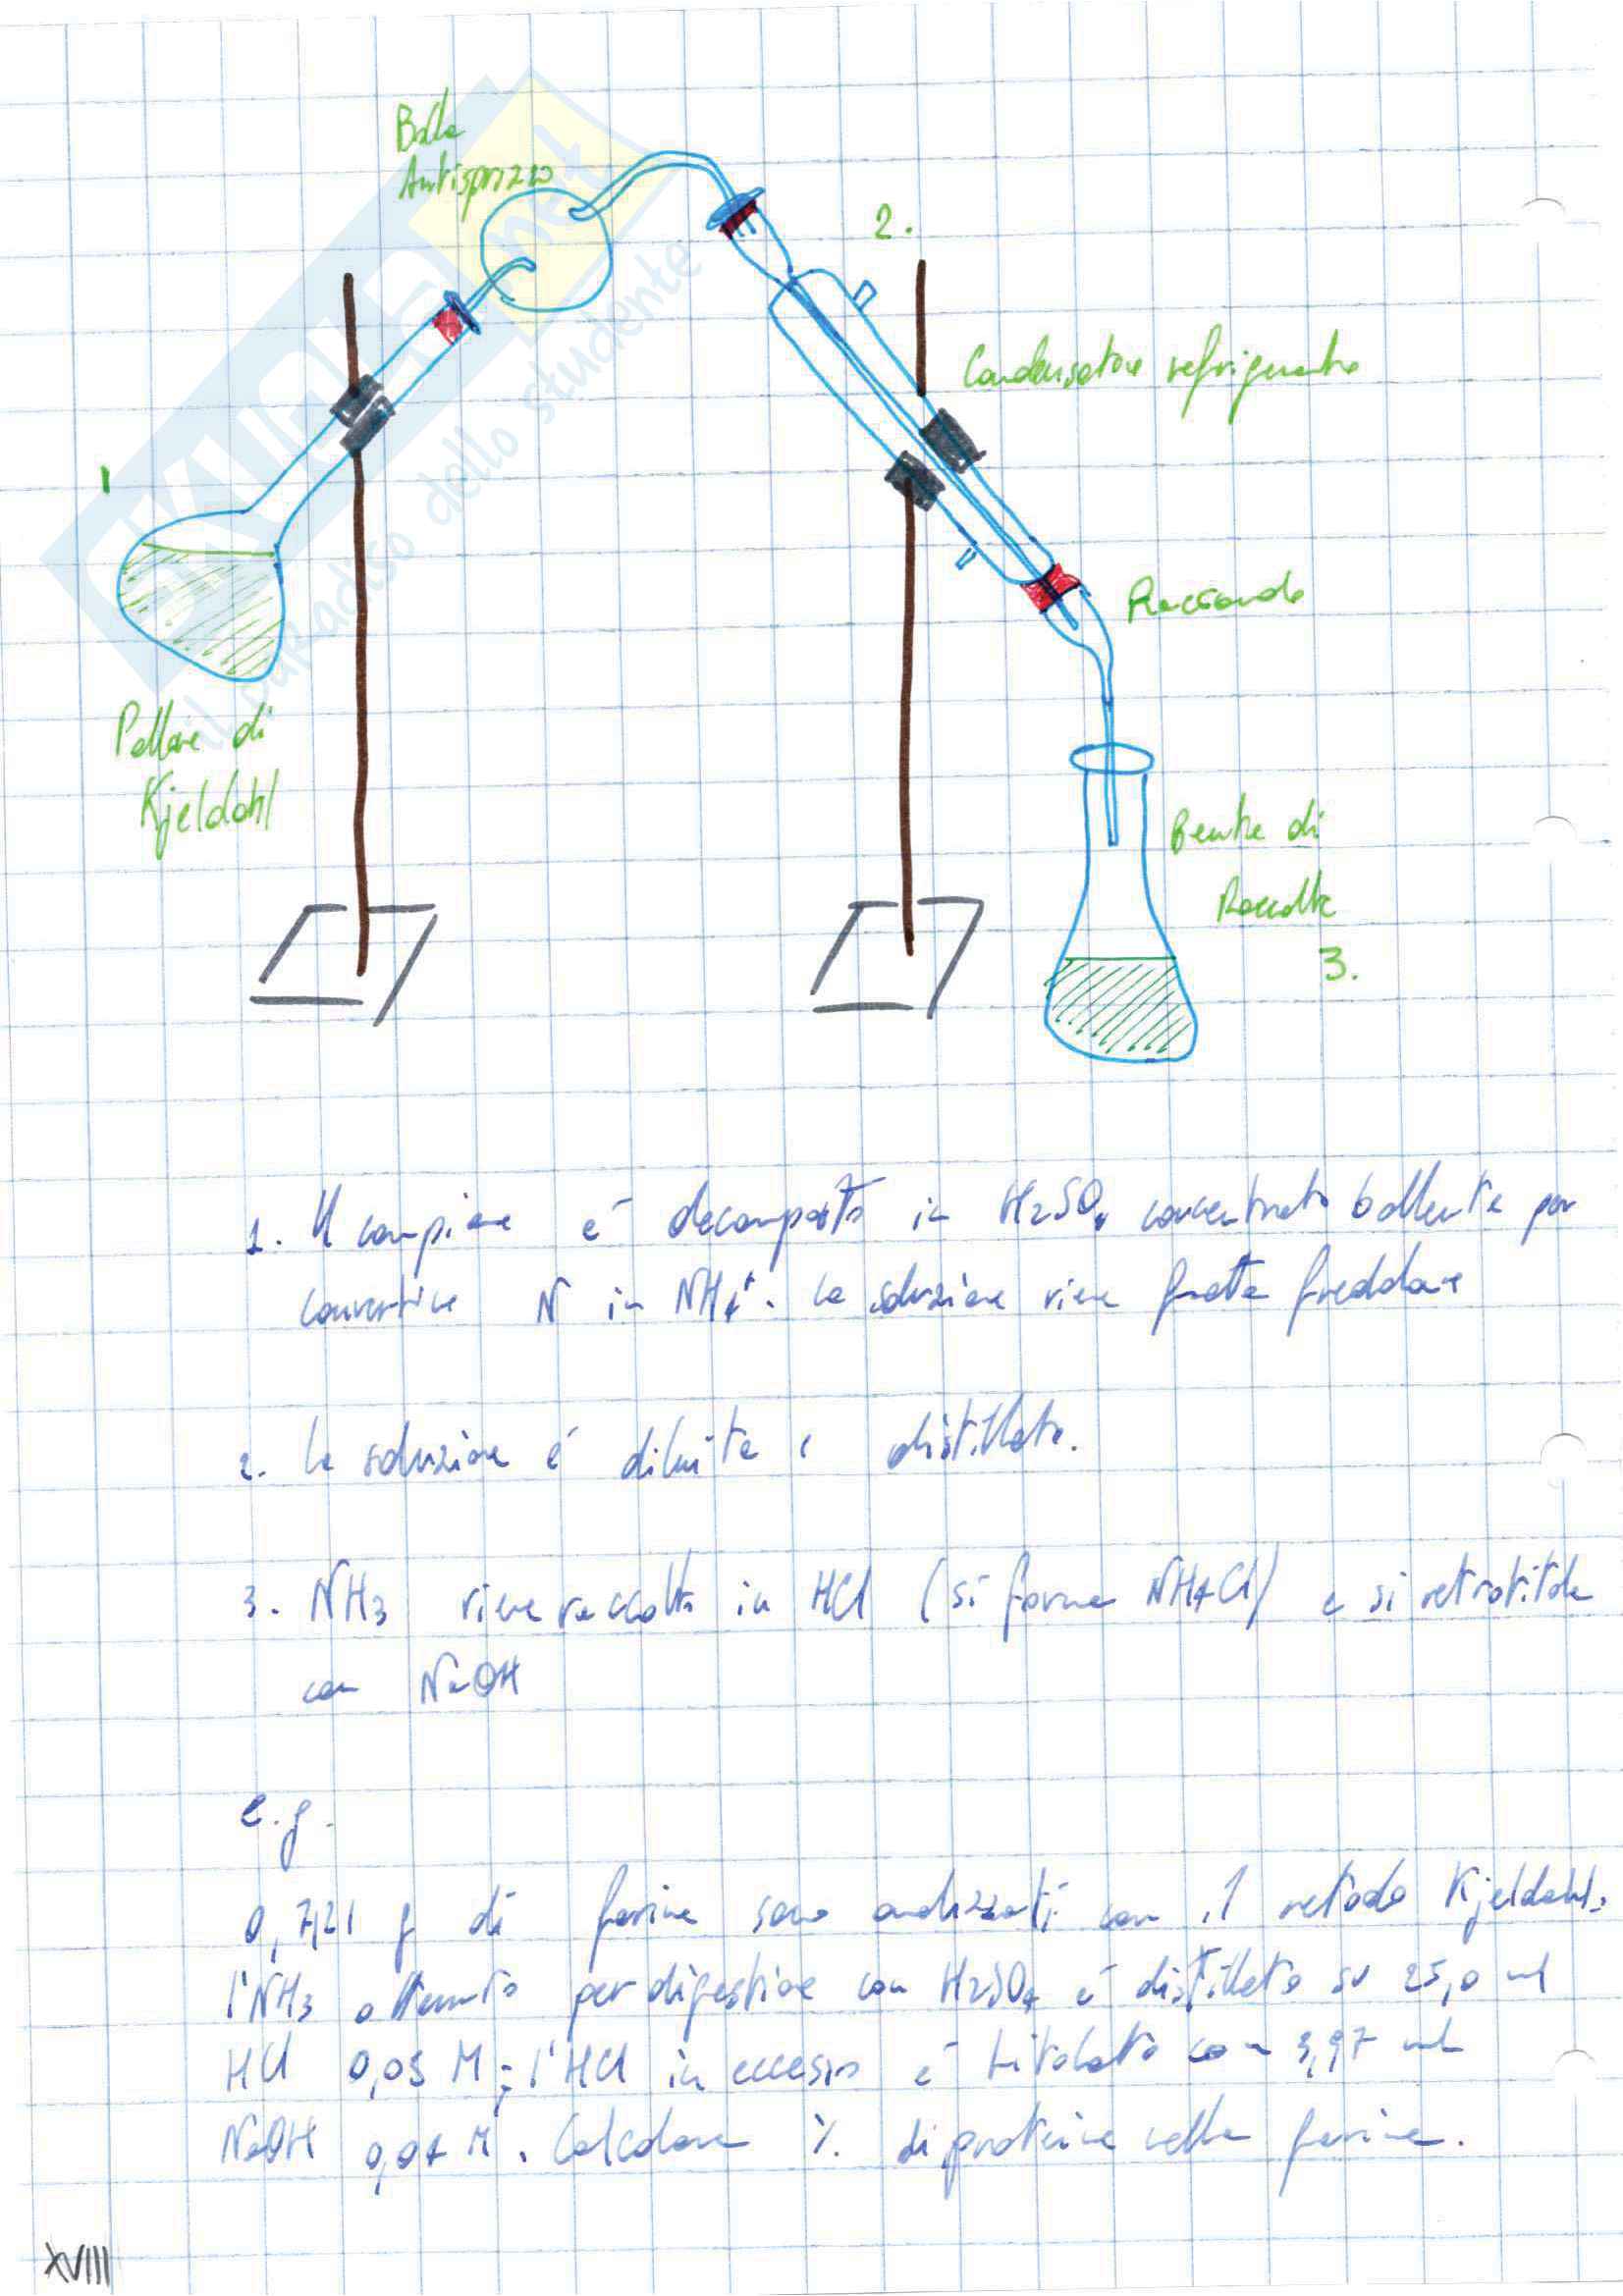 Bolla
Antisprizzo
2.
Condensatore refrigerante
1
Raccordo
Pallone di
Kjeldahl
Beuta di
Raccolta
3.
SKUOLA.net
il paradiso dello studente
1. Il campione é decomposto in H2SO4 concentrato bollente per
convertire N in NH4+. La soluzione viene fatta freddare
2. La soluzione é diluita e distillata.
3. NH3 viene raccolto in HCl (si forma NH4Cl) e si retrotitola
con NaOH
e.g.
0,7121 g di farina sono analizzati con il metodo Kjeldahl.
l'NH3 ottenuto per digestione con H2SO4 é distillato su 25,0 ml
HCl 0,05 M; l'HCl in eccesso é titolato con 3,97 ml
NaOH 0,04 M. Calcolare % di proteine nella farina.
XVIII